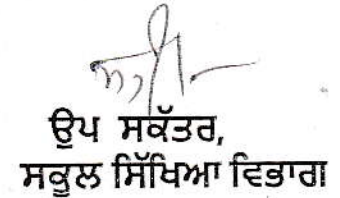 ਉਪ ਸਕੱਤਰ,
ਸਕੂਲ ਸਿੱਖਿਆ ਵਿਭਾਗ